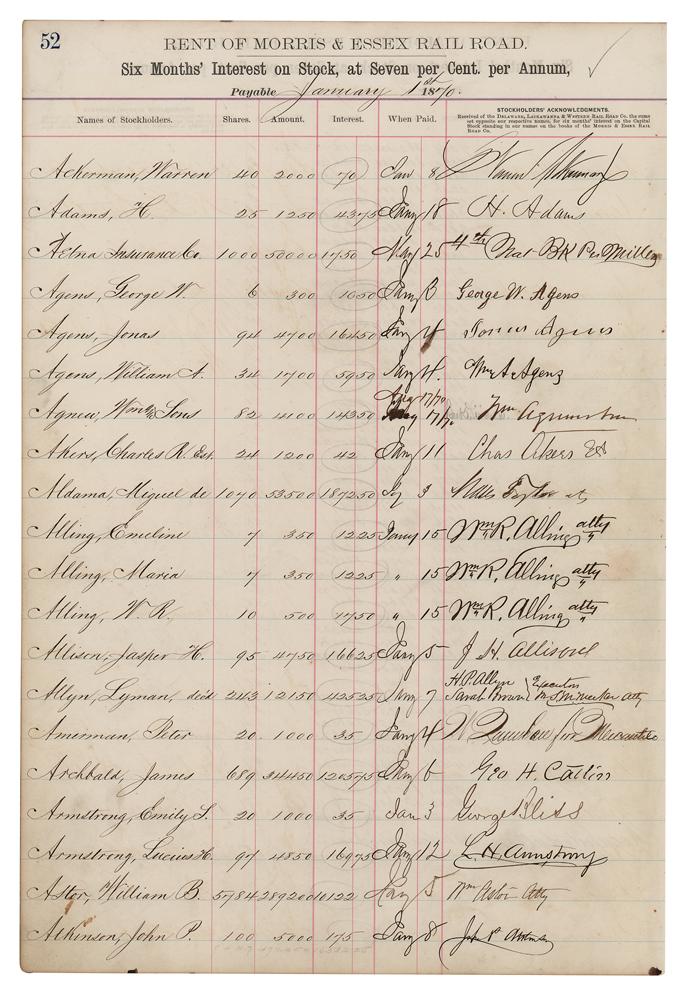 52
RENT OF MORRIS & ESSEX RAIL ROAD.
Six Months' Interest on Stock, at Seven per Cent. per Annum,
Payable January 1st 1870.
Names of Stockholders. Shares. Amount. Interest. When Paid. STOCKHOLDERS' ACKNOWLEDGMENTS.
Received of the DELAWARE, LACKAWANNA & WESTERN RAIL ROAD Co. the sums
set opposite our respective names, for six months' interest on the Capital
Stock standing in our names on the books of the MORRIS & ESSEX RAIL
ROAD Co.
Ackerman, Warren 40 2000 70 Jan 8 Warren Ackerman
Adams, H. 25 1250 4375 Jany 18 H. Adams
Aetna Insurance Co. 1000 50000 1750 May 25 4th Nat Bk Per Miller
Agens, George W. 6 300 1050 Jany 3 George W. Agens
Agens, Jonas 94 4700 16450 Jany 4 Jonas Agens
Agens, William A. 34 1700 5950 Jany 4. Wm A Agens
Aug 17/70
Agnew, Wm & Sons 82 4100 14350 17/70. Wm Agnew & Son
Akers, Charles R. Est. 24 1200 42 Jany 11 Chas Akers
Aldama, Miguel de 1070 53500 187250 Jy 3 Taylor
Alling, Emeline 7 350 1225 Jany 15 Wm R. Alling atty
Alling, Maria 7 350 1225 " 15 Wm R. Alling atty
Alling, W. R. 10 500 1750 " 15 Wm R. Alling atty
Allison, Jasper H. 95 4750 16625 Jany 5 J. H. Allison
Allyn, Lyman, dec'd 243 12150 42525 Jany 7 H. P. Allyn Sarah Brown } Executors atty
Amerman, Peter 20 1000 35 Jany 4 for Mercantile
Archbald, James 689 34450 120575 Jany 6 Geo H. Catlin
Armstrong, Emily S. 20 1000 35 Jan 3 George Bliss
Armstrong, Lucius H. 97 4850 16975 Jany 12 L. H. Armstrong
Astor, William B. 5784 289200 10122 Jany 5 Wm Astor Atty
Atkinson, John P. 100 5000 175 Jany 8 John P. Atkinson